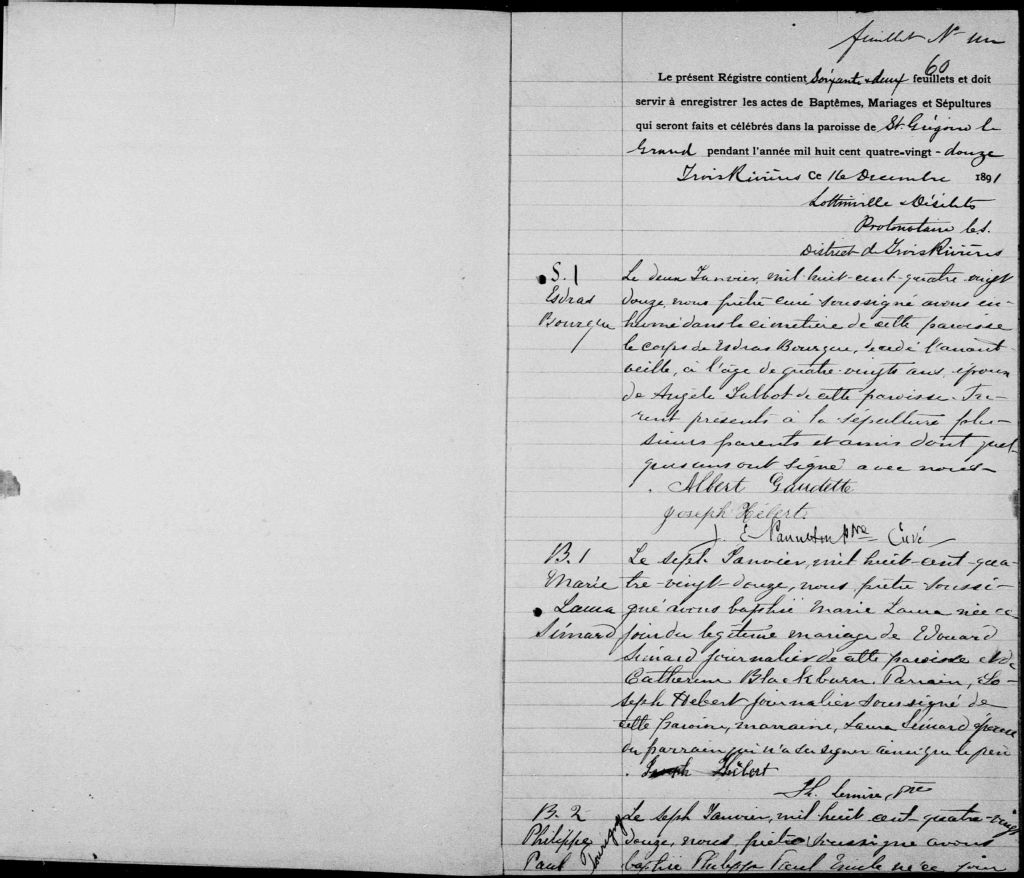 feuillet No un
60
Le présent Régistre contient Soixante & deux feuillets et doit
servir à enregistrer les actes de Baptêmes, Mariages et Sépultures
qui seront faits et célébrés dans la paroisse de St. Grégoire le
Grand pendant l'année mil huit cent quatre-vingt - douze
Trois Rivières Ce 16 Decembre 1891
Lottinville & Désilets
Protonotaire C.S.
District de Trois Rivières
S. 1
Esdras
Bourque
Le deux Janvier, mil-huit-cent-quatre-vingt
douze, nous prêtre curé soussigné avons in-
humé dans le cimetière de cette paroisse
le corps de Esdras Bourque, décédé l'avant
veille, à l'âge de quatre-vingts ans, époux
de Angèle Talbot de cette paroisse. Fu-
rent présents à la sépulture plu-
sieurs parents et amis dont quel-
ques uns ont signé avec nous-
Albert Gaudette
Joseph Hébert.
J. E. Panneton ptre Curé
B. 1
Marie
Laura
Simard
Le sept Janvier, mil huit-cent-qua-
tre-vingt-douze, nous, prêtre soussi-
gné avons baptisé Marie Laura née ce
jour du légitime mariage de Edouard
Simard journalier de cette paroisse et de
Catherine Blackburn. Parrain, Jo-
seph Hébert journalier soussigné de
cette paroisse, marraine, Laura Simard épouse
du parrain qui n'a su signer ainsi que le père
Joseph Hébert
Th. Lemire, ptre
B. 2
Philippe
Paul
Le sept Janvier, mil huit-cent-quatre-vingt
douze, nous, prêtre soussigné avons
baptisé Philippe Paul Emile né ce jour